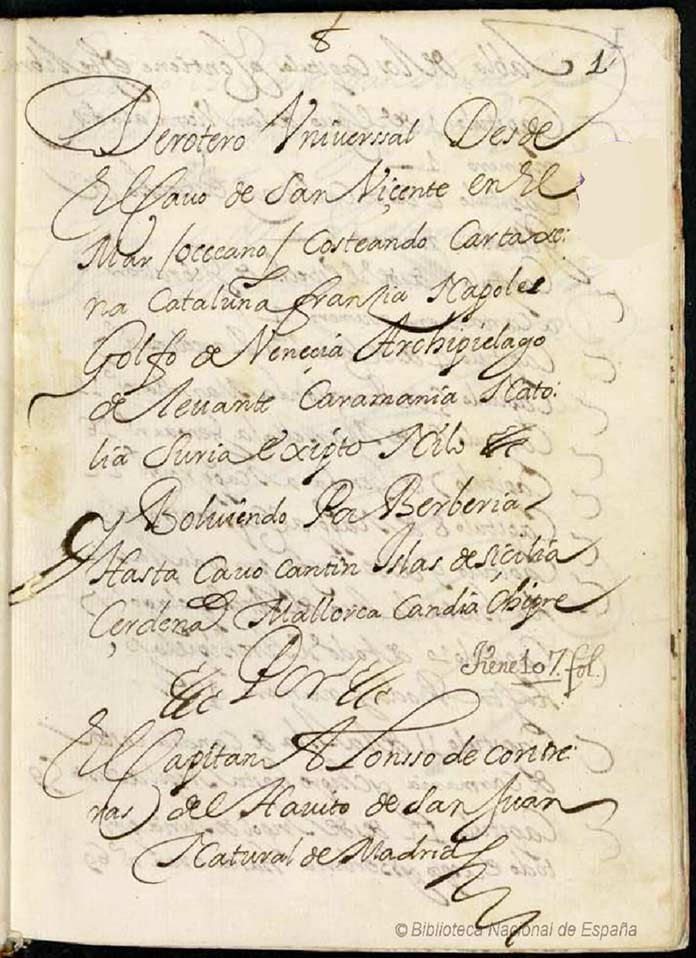 8
1
Derotero Vniverssal Desde
El Cavo de San Viçente en El
Mar /occeano/ Costeando Cartaxe:
na Cataluña franzia Napoles
Golfo de Veneçia Archipielago
de levante Caramania Nato:
lia Suria exipto Nilo
Bolviendo Pa Berberia
Hasta Cavo cantin Islas de sicilia
Çerdeña Mallorca Candia Chipre
Tiene 107. fol.
Por
El Capitan Alonsso de contre:
ras del Havito de San Juan
Natural de Madrid
© Biblioteca Nacional de España